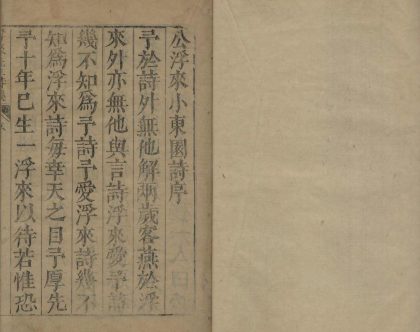 公浮來小東園詩序
予於詩外無他解兩歲客燕於浮
來外亦無他與言詩浮來愛予詩
幾不知爲予詩予愛浮來詩幾不
知爲浮來詩每幸天之目予厚先
予十年已生一浮來以待若惟恐